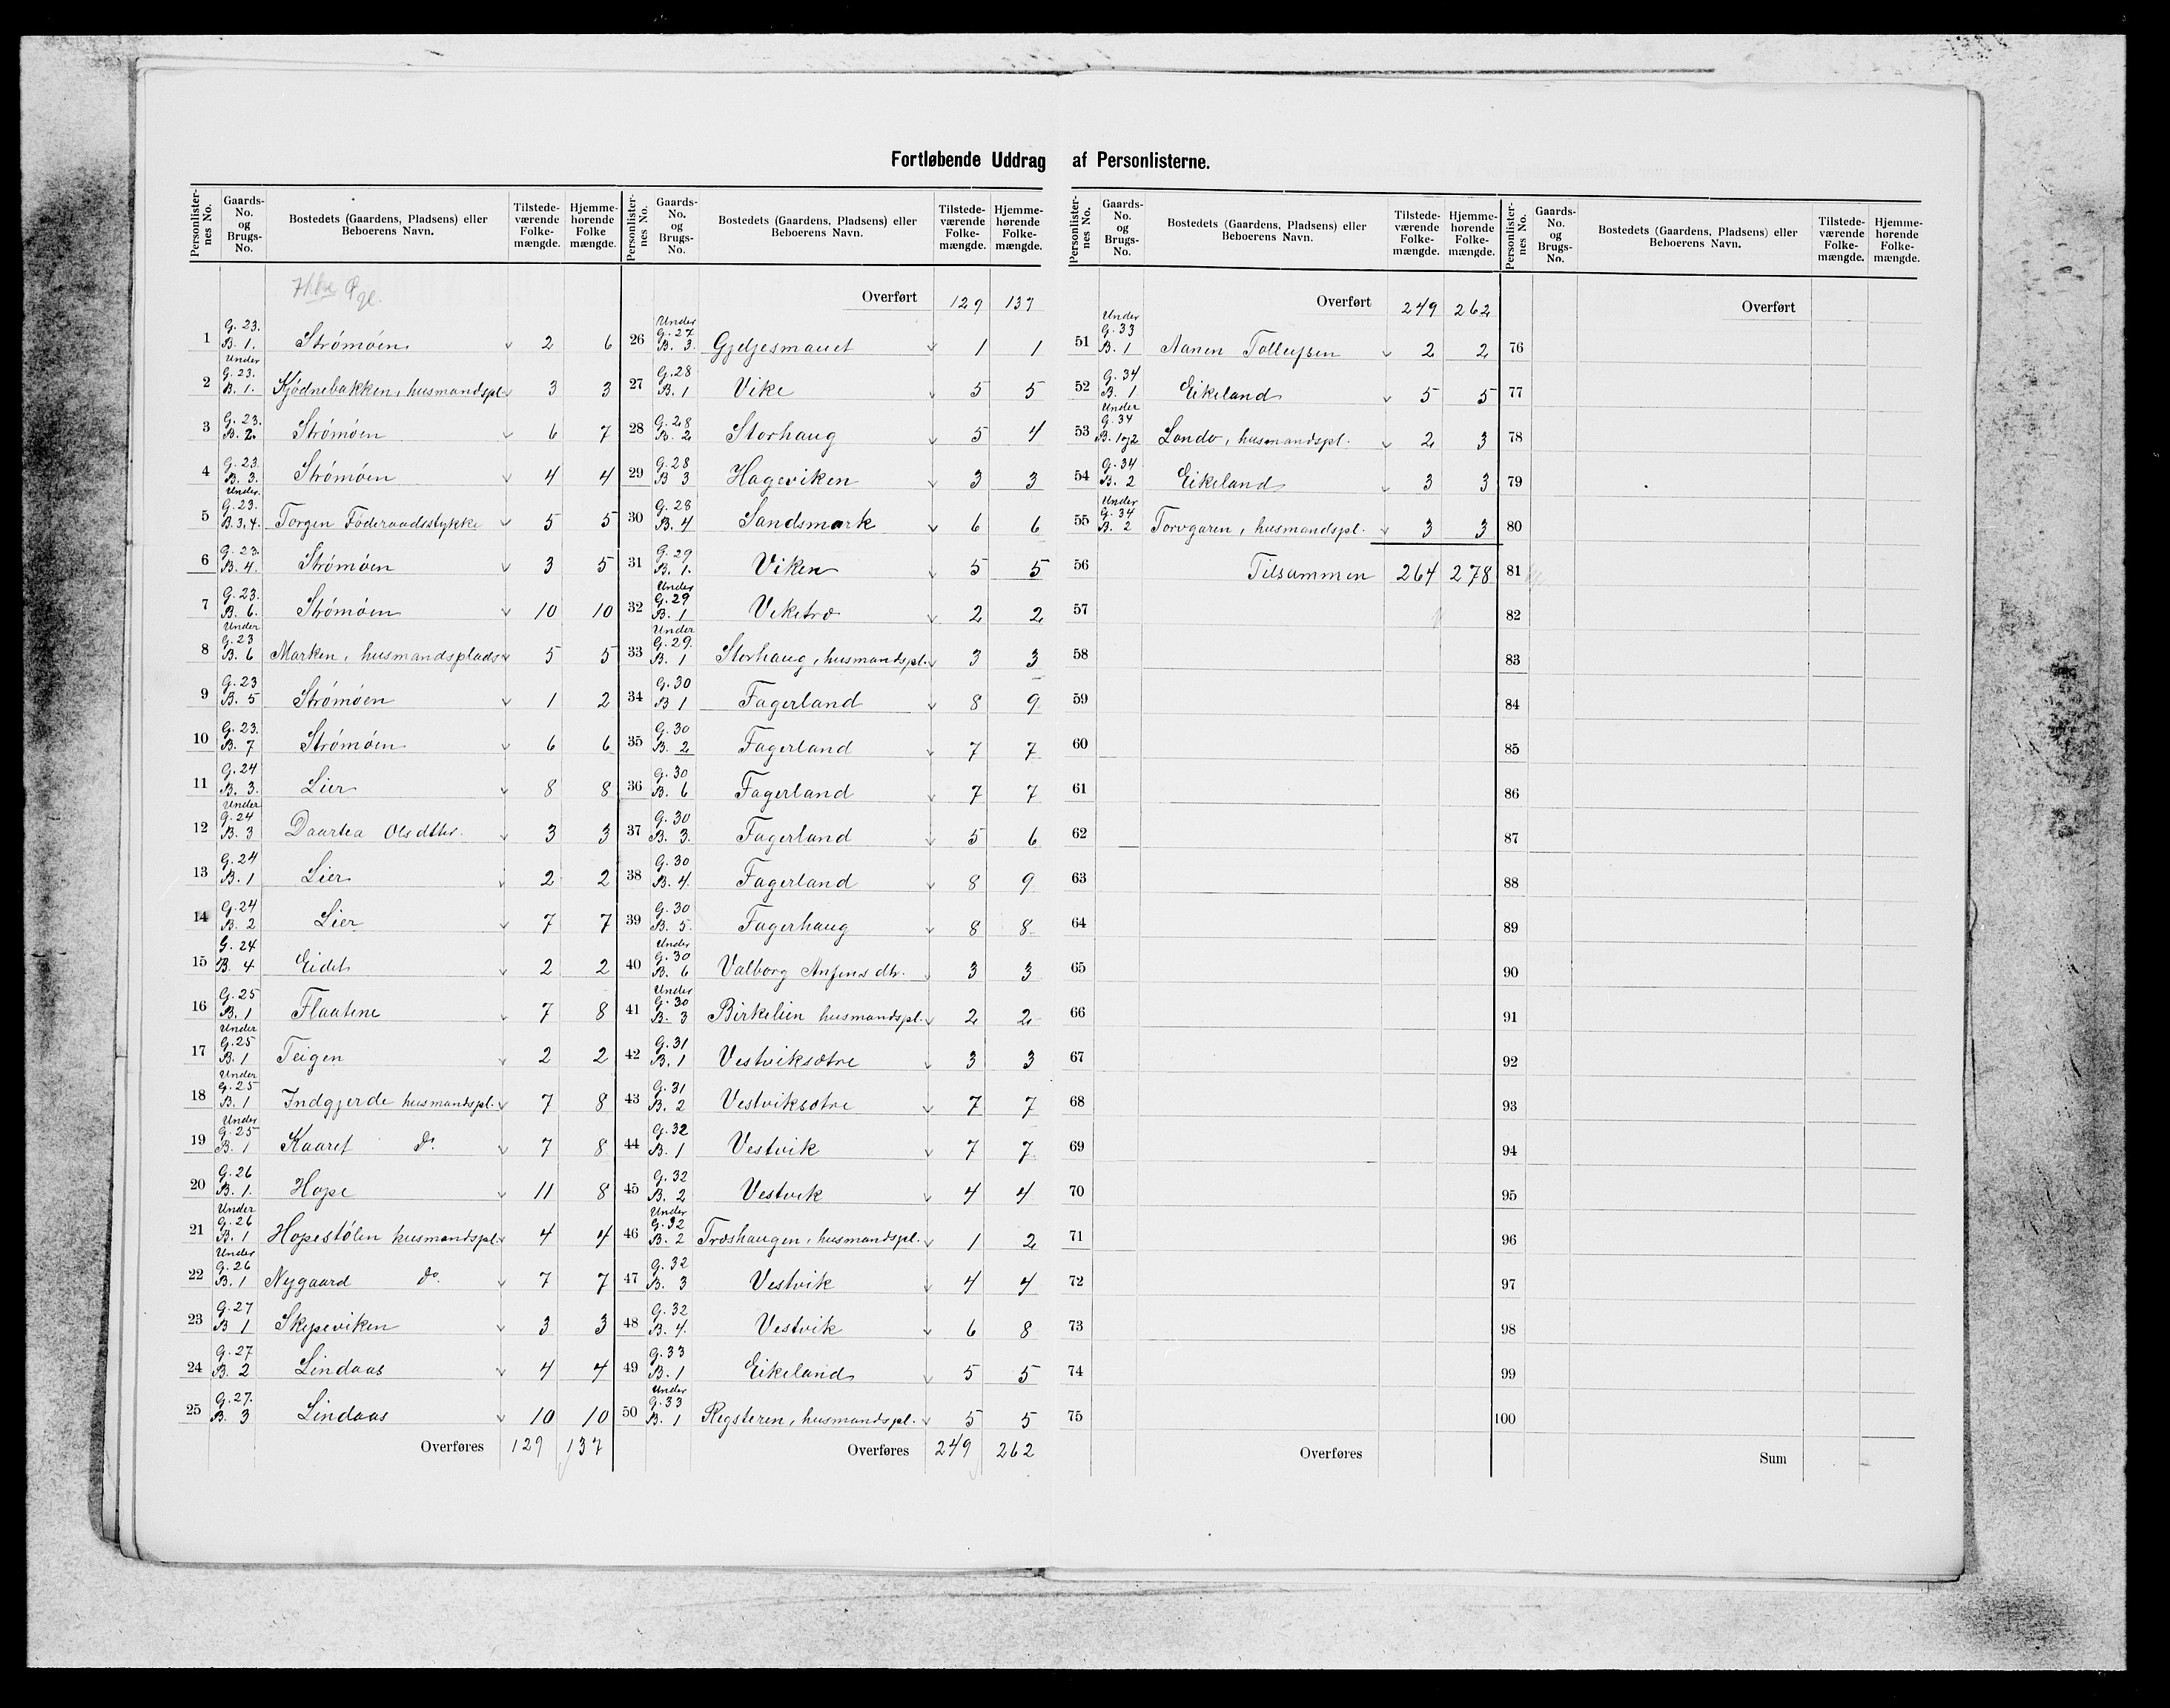 Fortløbende Uddrag af Personlisterne.
Personlister-nes No. | Gaards-No. og Brugs-No. | Bostedets (Gaardens, Pladsens) eller Beboerens Navn. | Tilstede-værende Folke-mængde. | Hjemme-hørende Folke mængde.
1 | G. 23. B. 1. | Strømøen | 2 | 6
2 | Under G. 23. B. 1. | Kjødnebakken, husmandspl | 3 | 3
3 | G. 23. B. 2. | Strømøen | 6 | 7
4 | G. 23. B. 3. | Strømøen | 4 | 4
5 | Under G. 23. B. 3. 4. | Torgen Føderaadsstykke | 5 | 5
6 | G. 23. B. 4. | Strømøen | 3 | 5
7 | G. 23. B. 6. | Strømøen | 10 | 10
8 | Under G. 23 B. 6 | Marken, husmandsplads | 5 | 5
9 | G. 23 B. 5 | Strømøen | 1 | 2
10 | G. 23. B. 7 | Strømøen | 6 | 6
11 | G. 24 B. 3. | Lier | 8 | 8
12 | Under G. 24 B. 3 | Daartea Olsdtr. | 3 | 3
13 | G. 24 B. 1 | Lier | 2 | 2
14 | G. 24 B. 2 | Lier | 7 | 7
15 | G. 24 B. 4 | Eidet | 2 | 2
16 | G. 25 B. 1 | Flaatene | 7 | 8
17 | Under G. 25 B. 1 | Teigen | 2 | 2
18 | Under G. 25 B. 1 | Indgjerde husmandspl. | 7 | 8
19 | Under G. 25 B. 1 | Kaaret do | 7 | 8
20 | G. 26 B. 1. | Hope | 11 | 8
21 | Under G. 26 B. 1 | Hopestølen husmandspl. | 4 | 4
22 | Under G. 26 B. 1 | Nygaard do. | 7 | 7
23 | G. 27 B 1 | Skipeviken | 3 | 3
24 | G. 27 B. 2 | Lindaas | 4 | 4
25 | G. 27. B. 3 | Lindaas | 10 | 10
Overføres | 129 | 137
Personlister-nes No. | Gaards-No. og Brugs-No. | Bostedets (Gaardens, Pladsens) eller Beboerens Navn. | Tilstede-værende Folke-mængde. | Hjemme-hørende Folke-mængde.
Overført | 129 | 137
26 | Under G. 27 B. 3. | Gjeljesmauet | 1 | 1
27 | G. 28 B. 1 | Vike | 5 | 5
28 | G. 28 B. 2 | Storhaug | 5 | 4
29 | G. 28 B 3 | Hageviken | 3 | 3
30 | G. 28 B. 4 | Sandsmark | 6 | 6
31 | G. 29 B. 1. | Viken | 5 | 5
32 | Under G. 29 B. 1 | Viketræ | 2 | 2
33 | Under G. 29. B. 1 | Storhaug, husmandspl. | 3 | 3
34 | G. 30 B 1 | Fagerland | 8 | 9
35 | G. 30 B. 2 | Fagerland | 7 | 7
36 | G. 30 B. 6 | Fagerland | 7 | 7
37 | G. 30 B. 3. | Fagerland | 5 | 6
38 | G. 30 B. 4. | Fagerland | 8 | 9
39 | G. 30 B. 5. | Fagerhaug | 8 | 8
40 | Under G. 30 B. 6 | Valborg Anfinsdtr. | 3 | 3
41 | Under G. 30 B. 3 | Birkelien husmandspl. | 2 | 2
42 | G. 31 B. 1 | Vestviksætre | 3 | 3
43 | G. 31 B. 2 | Vestviksætre | 7 | 7
44 | G. 32 B. 1 | Vestvik | 7 | 7
45 | G. 32 B. 2 | Vestvik | 4 | 4
46 | Under G. 32 B. 2 | Træshaugen, husmandspl. | 1 | 2
47 | G. 32 B. 3 | Vestvik | 4 | 4
48 | G. 32 B. 4. | Vestvik | 6 | 8
49 | G. 33 B. 1 | Eikeland | 5 | 5
50 | Under G. 33 B. 1 | Regsteren, husmandspl. | 5 | 5
Overføres | 249 | 262
Personlister-nes No. | Gaards-No. og Brugs-No. | Bostedets (Gaardens, Pladsens) eller Beboerens Navn. | Tilstede-værende Folke-mængde. | Hjemme-hørende Folke-mængde.
Overført | 249 | 262
51 | Under G. 33 B. 1 | Nanen Tollefsen | 2 | 2
52 | G. 34 B. 1 | Eikeland | 5 | 5
53 | Under G. 34 B. 1og2 | Londo, husmandspl. | 2 | 3
54 | G. 34 B. 2 | Eikeland | 3 | 3
55 | Under G. 34 B. 2 | Torvgaren, husmandspl. | 3 | 3
56 | Tilsammen | 264 | 278
57
58
59
60
61
62
63
64
65
66
67
68
69
70
71
72
73
74
75
Overføres
Personlister-nes No. | Gaards-No. og Brugs-No. | Bostedets (Gaardens, Pladsens) eller Beboerens Navn. | Tilstede-værende Folke-mængde. | Hjemme-hørende Folke-mængde.
Overført
76
77
78
79
80
81
82
83
84
85
86
87
88
89
90
91
92
93
94
95
96
97
98
99
100
Sum